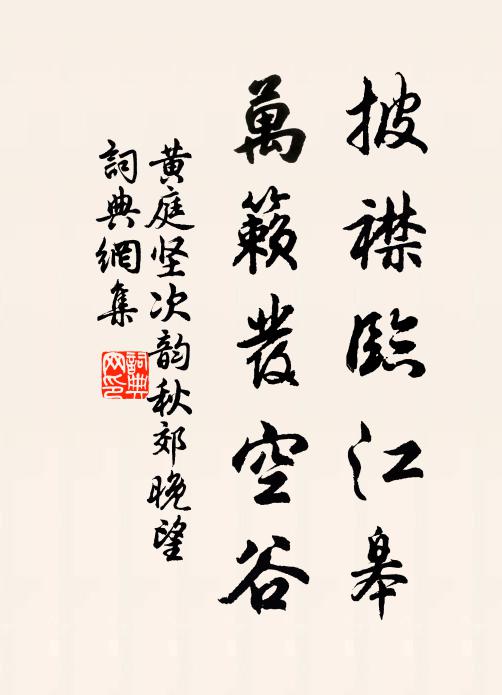 披襟臨江皋
萬籟發空谷
黄庭坚次韵秋郊晚望
詞典網集
詞典网印